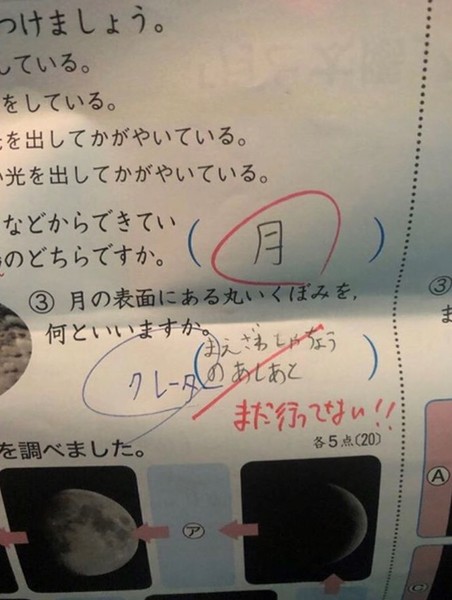 つけましょう。
している。
をしている。
を出してかがやいている。
光を出してかがやいている。
などからできてい
のどちらですか。
(月)
③ 月の表面にある丸いくぼみを、
何といいますか。
(まえざわしゃちょう
のあしあと)
クレータ
まだ行ってない!!
各5点(20)
を調べました。
㋐
Ⓐ
③
ま